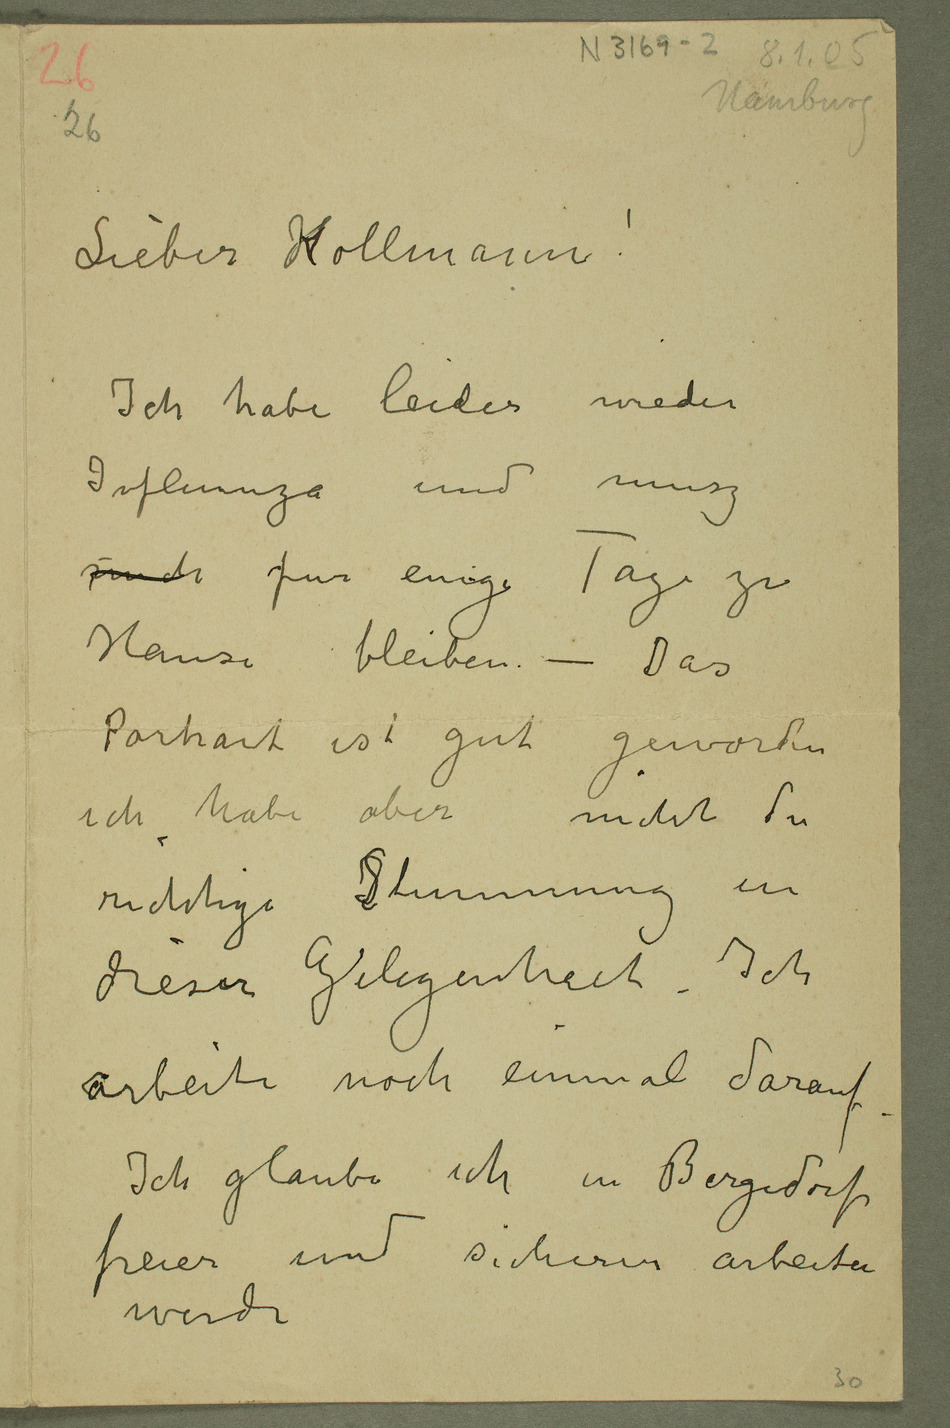 26
N 3169-2 8.1.05
26
Hamburg
Lieber Kollmann!
Ich habe leider wieder
Influenza und musz
für einige Tage zu
Hause bleiben. — Das
Portrait ist gut geworden
ich habe aber nicht die
richtige Stimmung in
dieser Gelegenheit. Ich
arbeite noch einmal darauf.
Ich glaube ich in Bergedorf
freier und sicherer arbeiten
werde
30